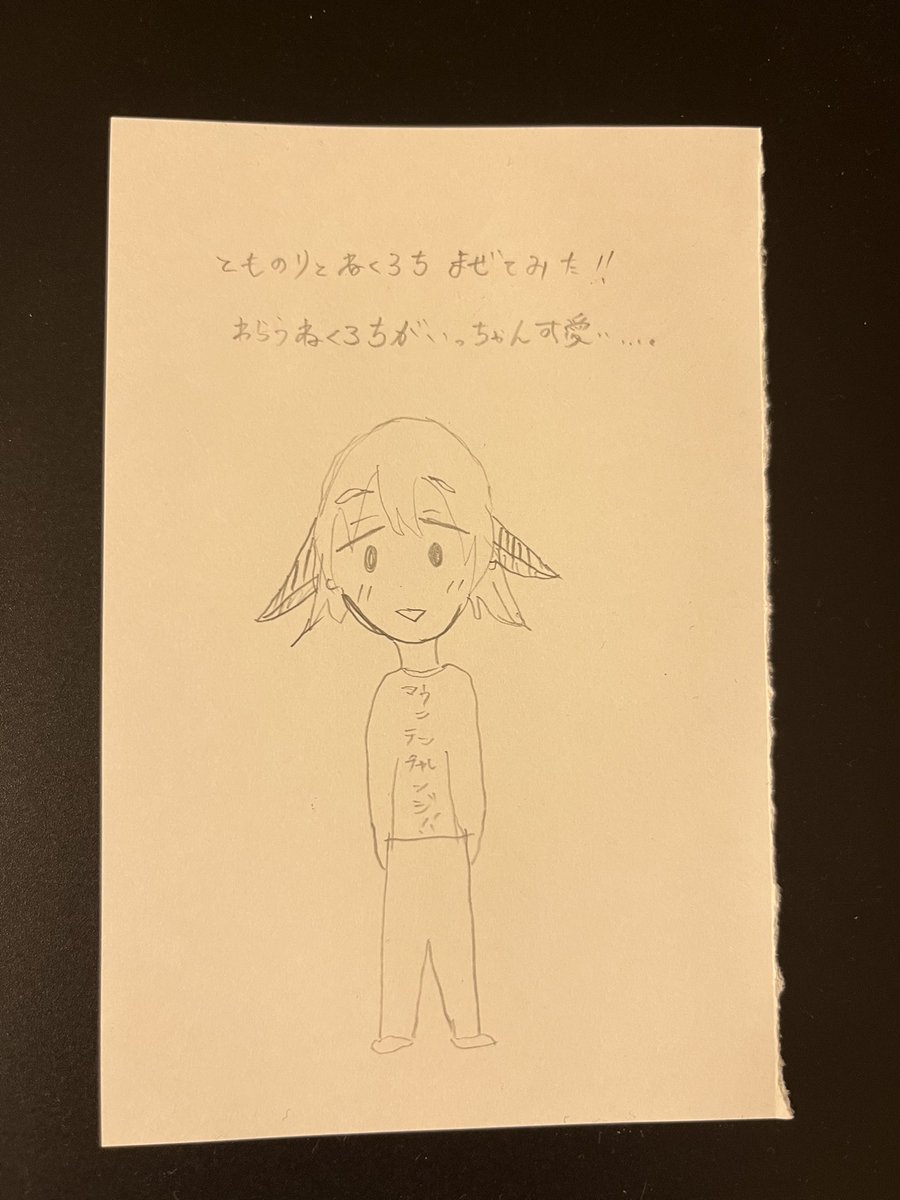 とものりとねくろち まぜてみた!!
わらうねくろちがいっちゃん可愛い....。
マウ
ン
テン
チャレ
ン
ジ!!